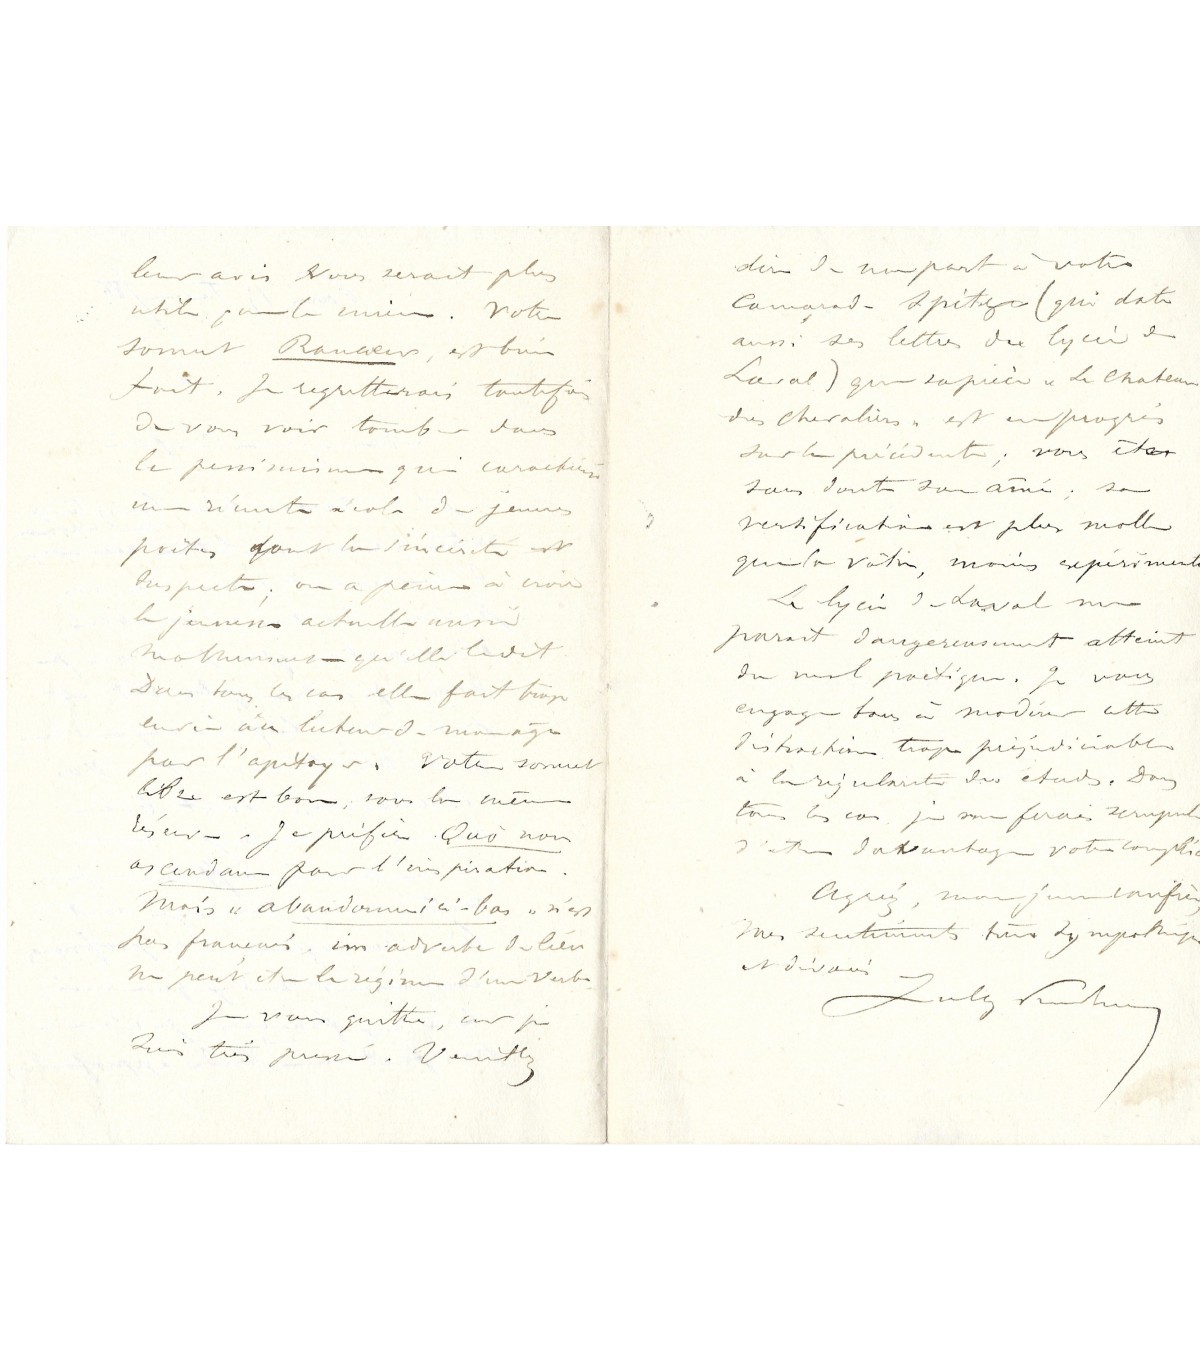 leur avis vous serait plus
utile que le mien. Votre
sonnet Rancœurs, est bien
fait. Je regretterais toutefois
de vous voir tomber dans
le pessimisme qui caractérise
une récente école de jeunes
poètes dont la sincérité est
suspecte; on a peine à croire
la jeunesse actuelle aussi
malheureuse qu'elle le dit.
Dans tous les cas elle fait trop
envie au lecteur de mon âge
pour l'apitoyer. Votre sonnet
est bon, sous la même
réserve. Je préfère Quò non
ascendam pour l'inspiration.
Mais « abandonner ici-bas » n'est
pas français, un adverbe de lieu
ne peut être le régime d'un verbe.
Je vous quitte, car je
suis très pressé. Veuillez
dire de ma part à votre
camarade Spitzer (qui date
aussi ses lettres du lycée de
Laval) que sa pièce « Le Chateau
des Chevaliers » est en progrès
sur la précédente; vous êtes
sans doute son aîné; sa
versification est plus molle
que la vôtre, moins expérimentée
Le lycée de Laval me
parait dangereusement atteint
du mal poétique. Je vous
engage tous à modérer cette
distraction trop préjudiciable
à la régularité des études. Dans
tous les cas je me ferais scrupule
d'être davantage votre complice
Agréez, mon jeune confrère,
mes sentiments très sympathiques
et dévoués
Sully Prudhomme